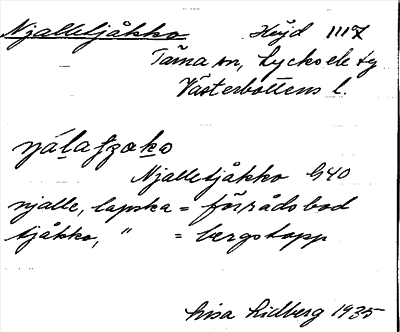 Njalletjåkko Höjd 1117
Tärna sn, Lycksele tg
Västerbottens l.
njálatzoko
Njalletjåkko G40
njalle, lapska = förrådsbod
tjåkko, " = bergstopp
Lisa Lidberg 1935